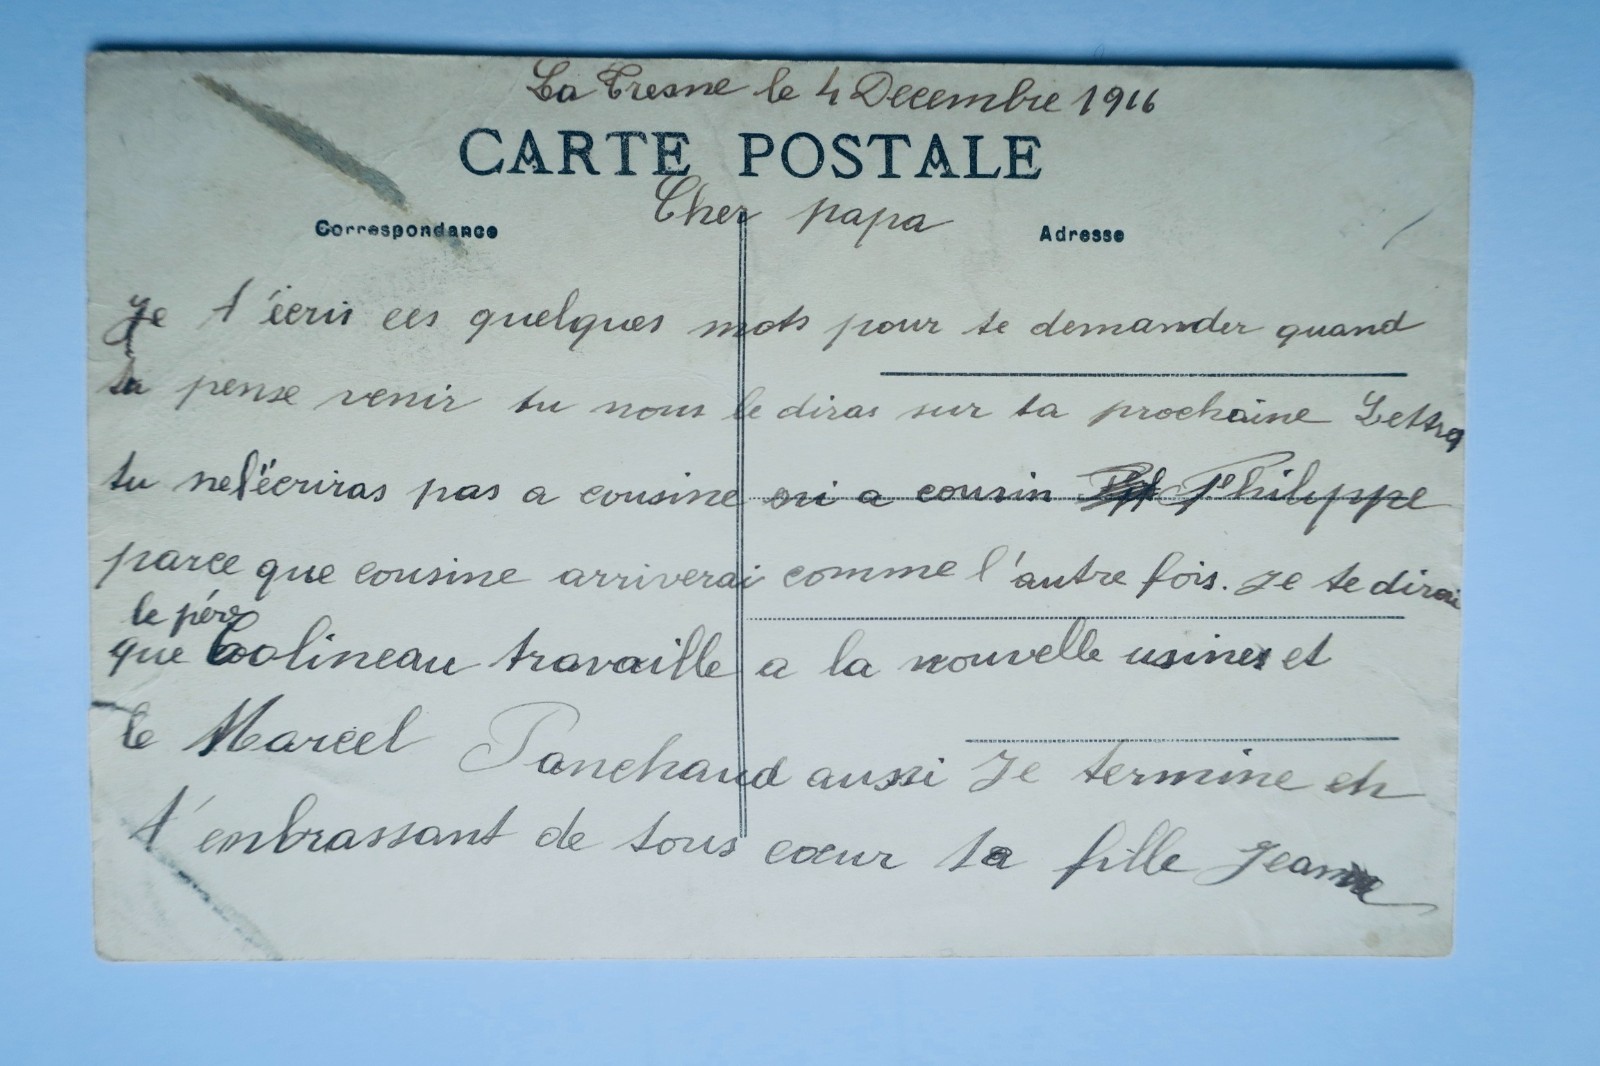 La Tresne le 4 Decembre 1916
CARTE POSTALE
Cher papa
Correspondance
Adresse
Je t'écris ces quelques mots pour te demander quand
tu pense venir tu nous le diras sur ta prochaine Lettre
tu ne l'écriras pas a cousine ni a cousin Philippe
parce que cousine arriverai comme l'autre fois. Je te dirai
le père
que Colineau travaille a la nouvelle usines et
le Marcel Panchaud aussi Je termine en
t'embrassant de tous cœur ta fille Jeanne